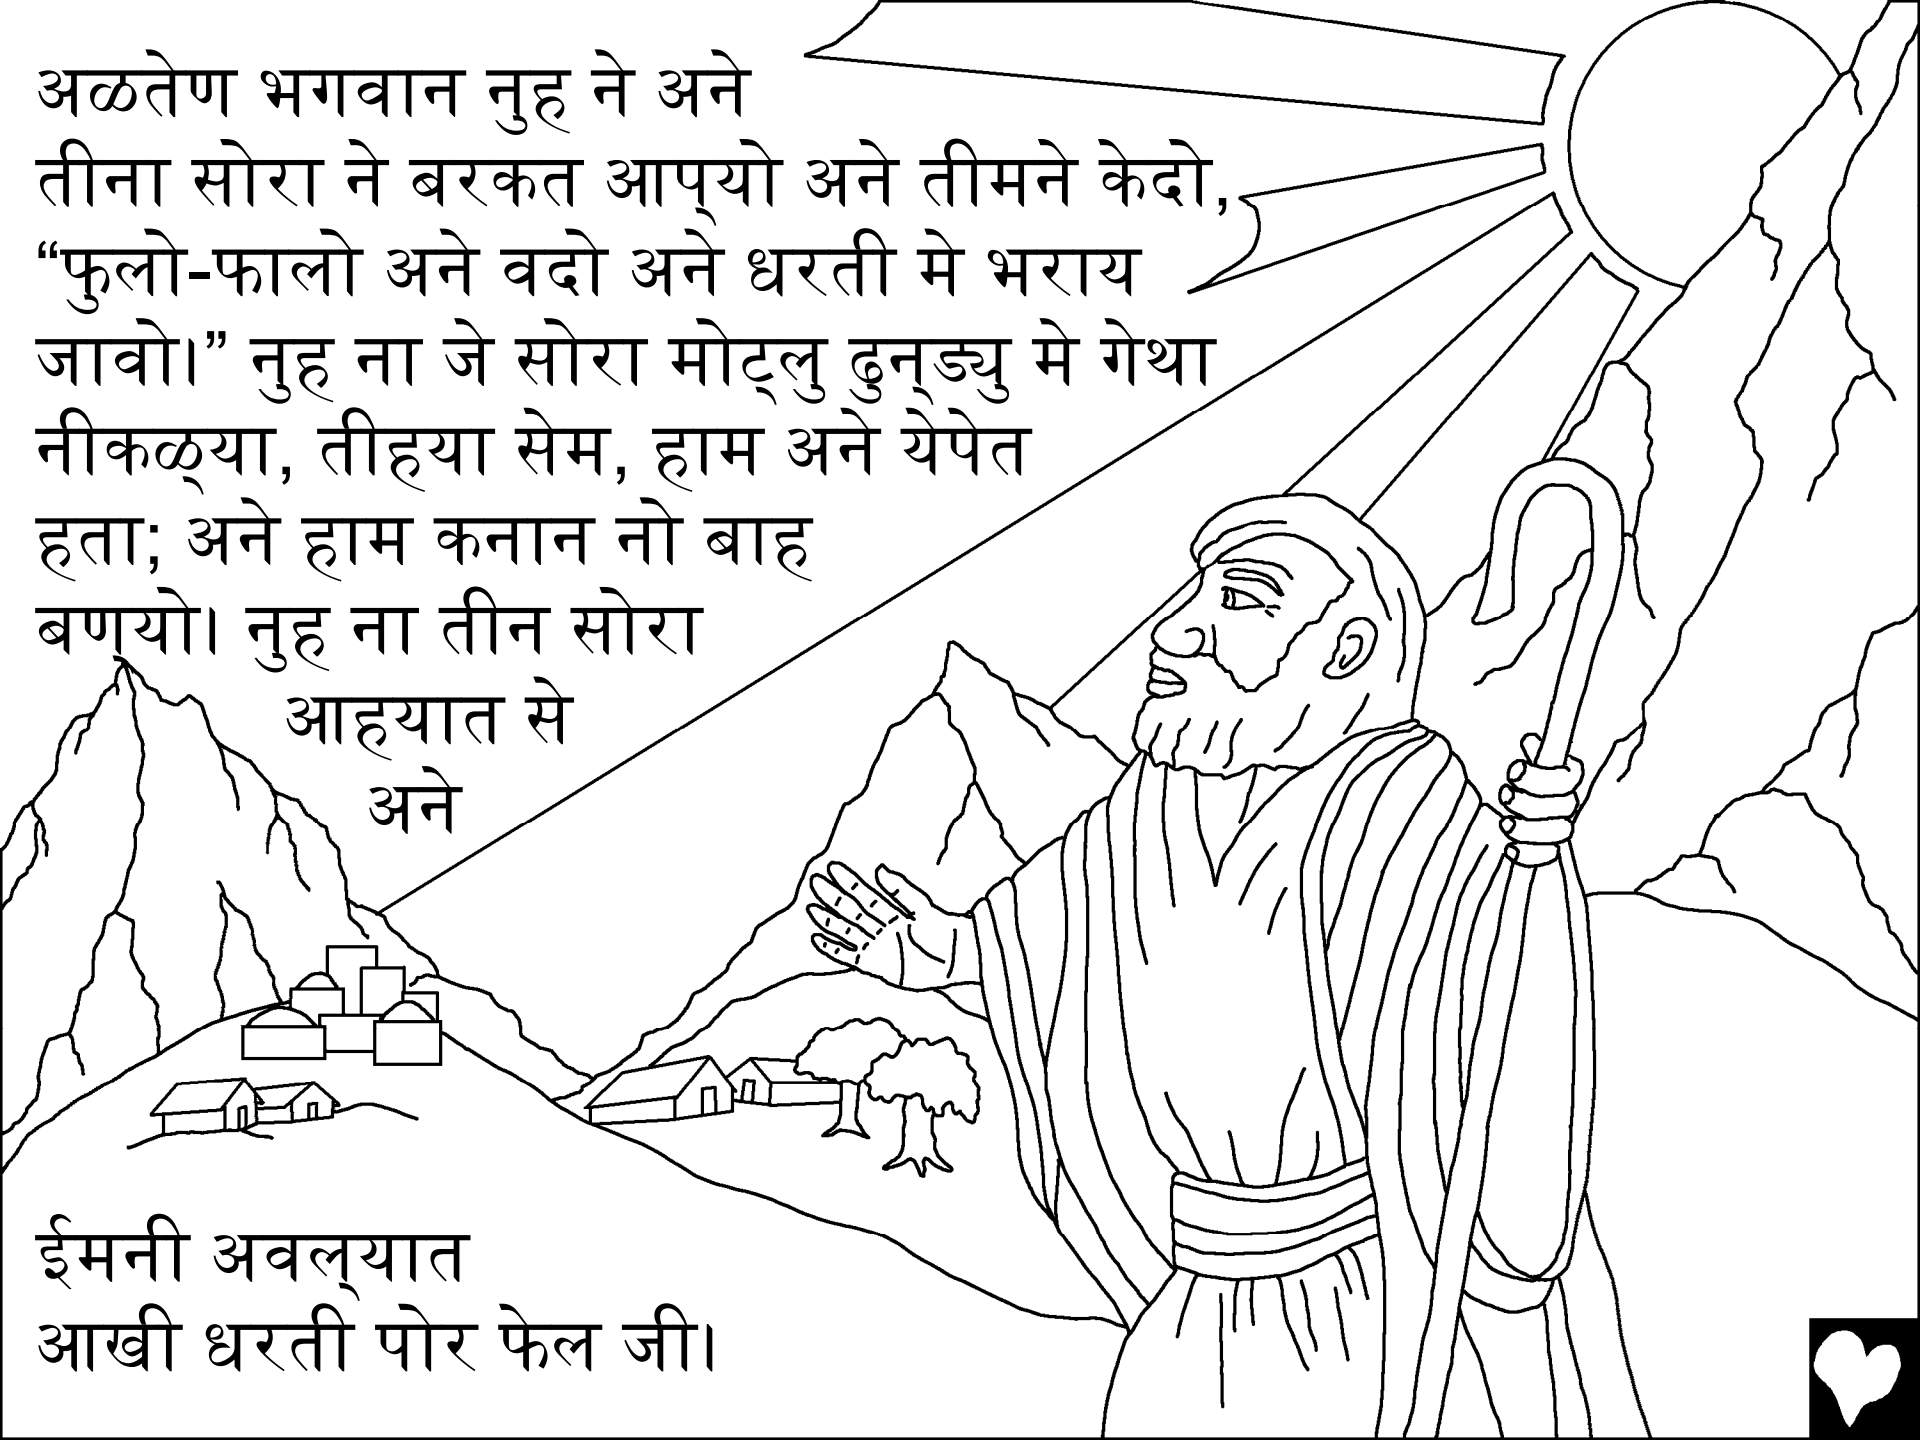 अळतेण भगवान नुह ने अने
तीना सोरा ने बरकत आप्‌यो अने तीमने केदो,
“फुलो-फालो अने वदो अने धरती मे भराय
जावो।” नुह ना जे सोरा मोट्‌लु ढुन्‌ड्यु मे गेथा
नीकळ्‌या, तीहया सेम, हाम अने येपेत
हता; अने हाम कनान नो बाह
बण्‌यो। नुह ना तीन सोरा
आहयात से
अने
ईमनी अवल्‌यात
आखी धरती पोर फेल जी।